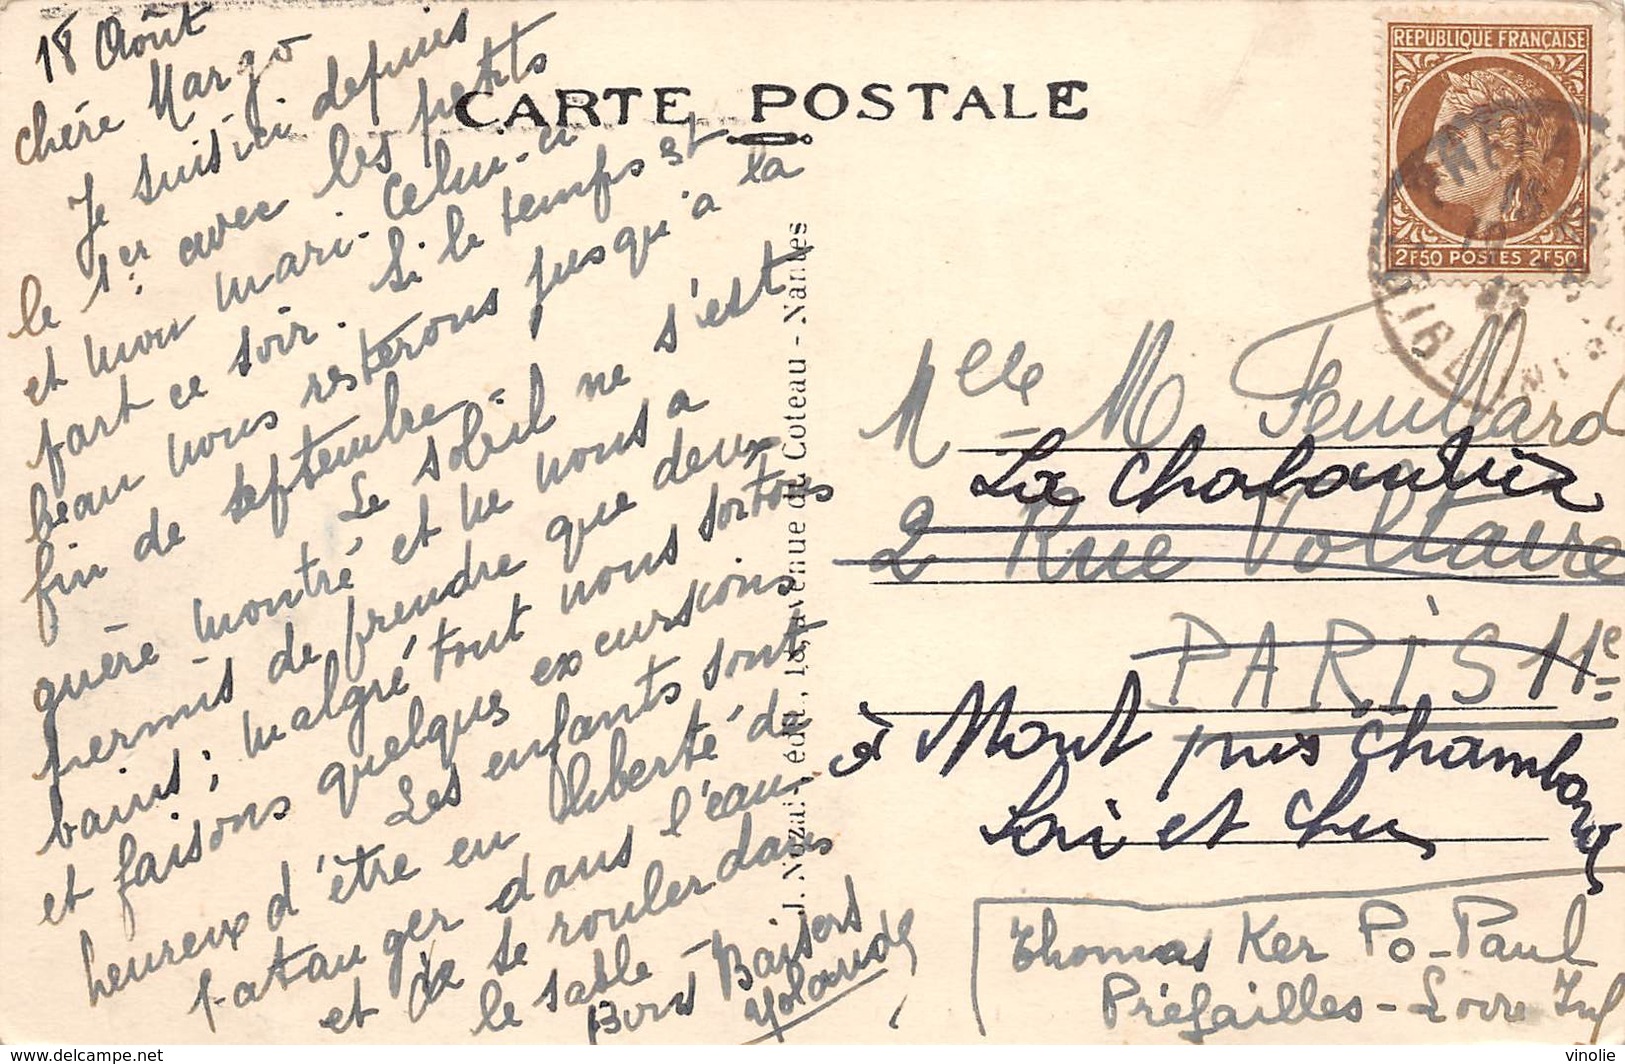 18 Août
Chère Margo
Je suis ici depuis
le 1er avec les petits
et mon mari. Celui-ci
part ce soir. Si le temps est
beau nous resterons jusqu'à la
fin de septembre.
Le soleil ne s'est
guère montré et ne nous a
permis de prendre que deux
bains ; malgré tout nous sortons
et faisons quelques excursions
Les enfants sont
heureux d'être en liberté de
patauger dans l'eau
et de se rouler dans
le sable -
Bons Baisers
Yolande
CARTE POSTALE
J. Nozais, édit., 18, avenue du Coteau - Nantes
REPUBLIQUE FRANÇAISE
2F50 POSTES 2F50
Melle M Feuillard
La Chabaudière
2 Rue Voltaire
PARIS 11e
à Mont près Chambord
Loi et Cher
Thomas Ker Po-Paul
Préfailles - Loire Inf
vinolie